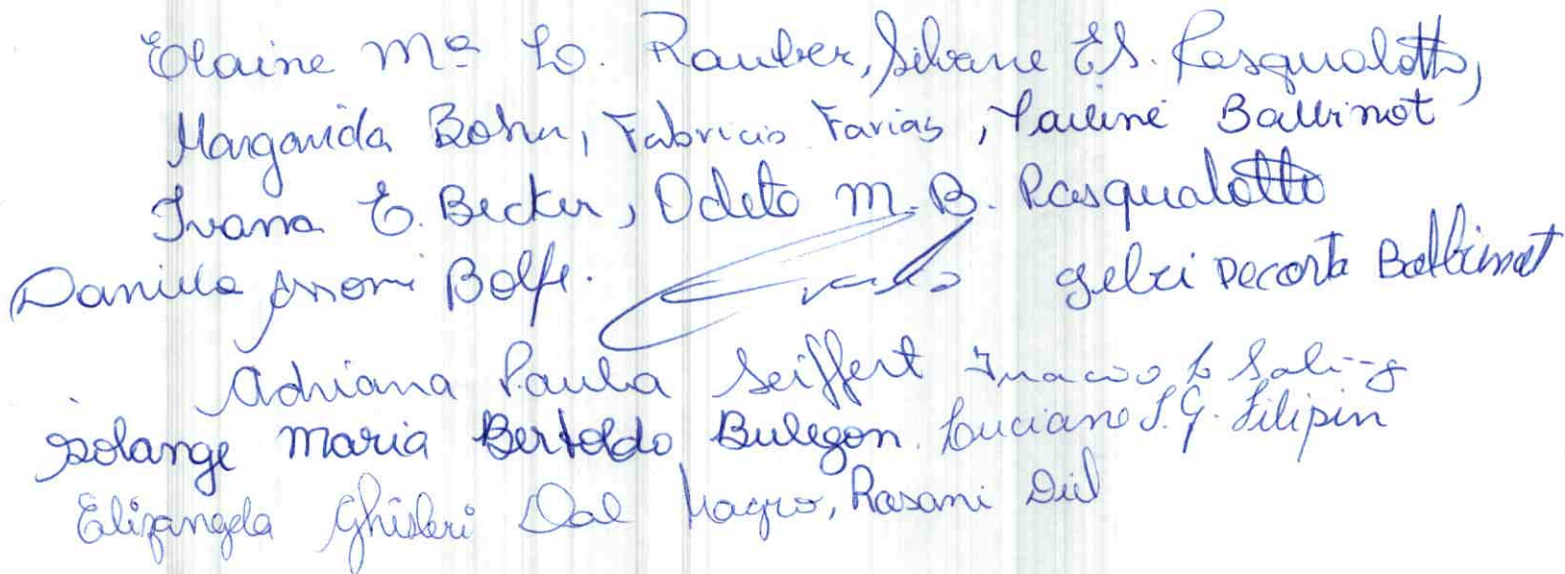 Elaine Mª L. Rauber, Silvane E.S. Pasqualotto,
Margarida Bohn, Fabricio Farias, Pauline Balbinot
Ivana E. Becker, Odete M.B. Pasqualotto
Daniela Bolfe. Gelci Decosta Balbinot
Adriana Paula Seiffert Inacio
Solange Maria Bertoldo Bulegon. Luciano S.G. Filipin
Elizangela Ghisleri Dal Magro, Rosani Diel